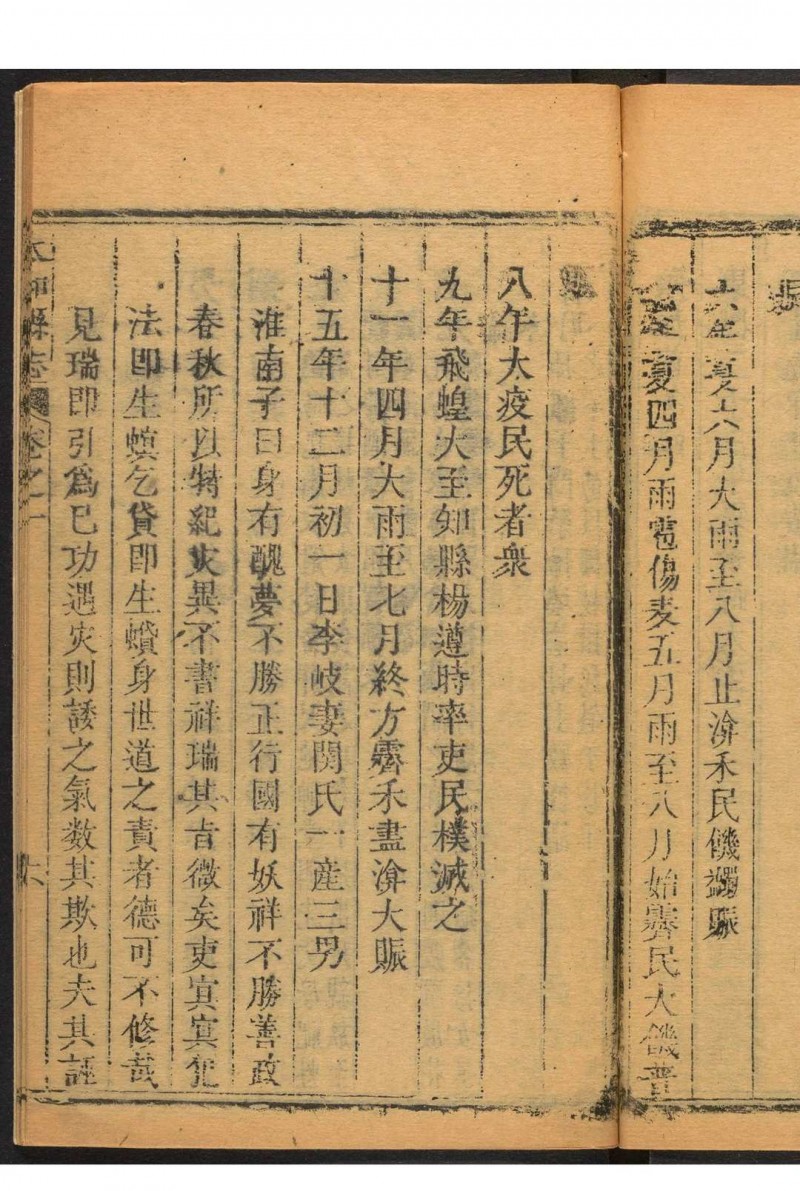 六年夏六月大雨至八月止渰禾民饑蠲賑
夏四月雨雹傷麦五月雨至八月始霽民大饑普
賑
八年大疫民死者衆
九年飛蝗大至知縣楊遵時率吏民撲滅之
十一年四月大雨至七月終方霽禾盡渰大賑
十五年十二月初一日李岐妻関氏一産三男
淮南子曰身有醜夢不勝正行國有妖祥不勝善政
春秋所以特紀灾異不書祥瑞其旨微矣吏冥冥犯
法即生螟乞貸即生蟥身世道之責者德可不修哉
見瑞即引爲已功遇灾則諉之氣数其欺也夫其誣
太和縣志 卷之一 六